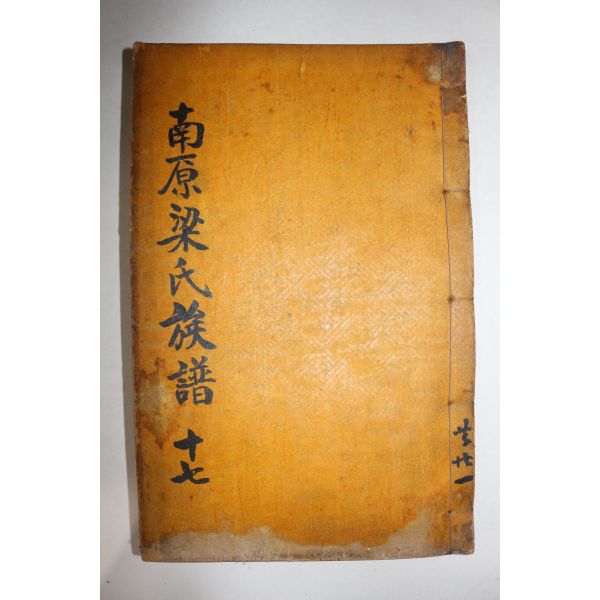 南原梁氏族譜 十七
共卄一